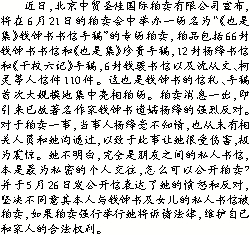 近日，北京中贸圣佳国际拍卖有限公司宣布，
将在6月21日的拍卖会中举办一场名为“《也是
集》钱钟书书信手稿”的专场拍卖，拍品包括66封
钱钟书书信和《也是集》珍贵手稿，12封杨绛书信
和《干校六记》手稿，6封钱瑗书信以及沈从文、柯
灵等人信件110件。这也是钱钟书的信札、手稿
首次大规模地集中亮相拍卖。拍卖消息一出，即
引来已故著名作家钱钟书遗孀杨绛的强烈反对。
对于拍卖一事，当事人杨绛毫不知情，也从未有相
关人员和她沟通过，以致于此事让她很受伤害，极
为震惊。她不明白，完全是朋友之间的私人书信，
本是最为私密的个人交往，怎么可以公开拍卖？
并于5月26日发公开信表达了她的愤怒和反对，
坚决不同意其本人与钱钟书及女儿的私人书信被
拍卖，如果拍卖强行举行她将诉诸法律，维护自己
和家人的合法权利。